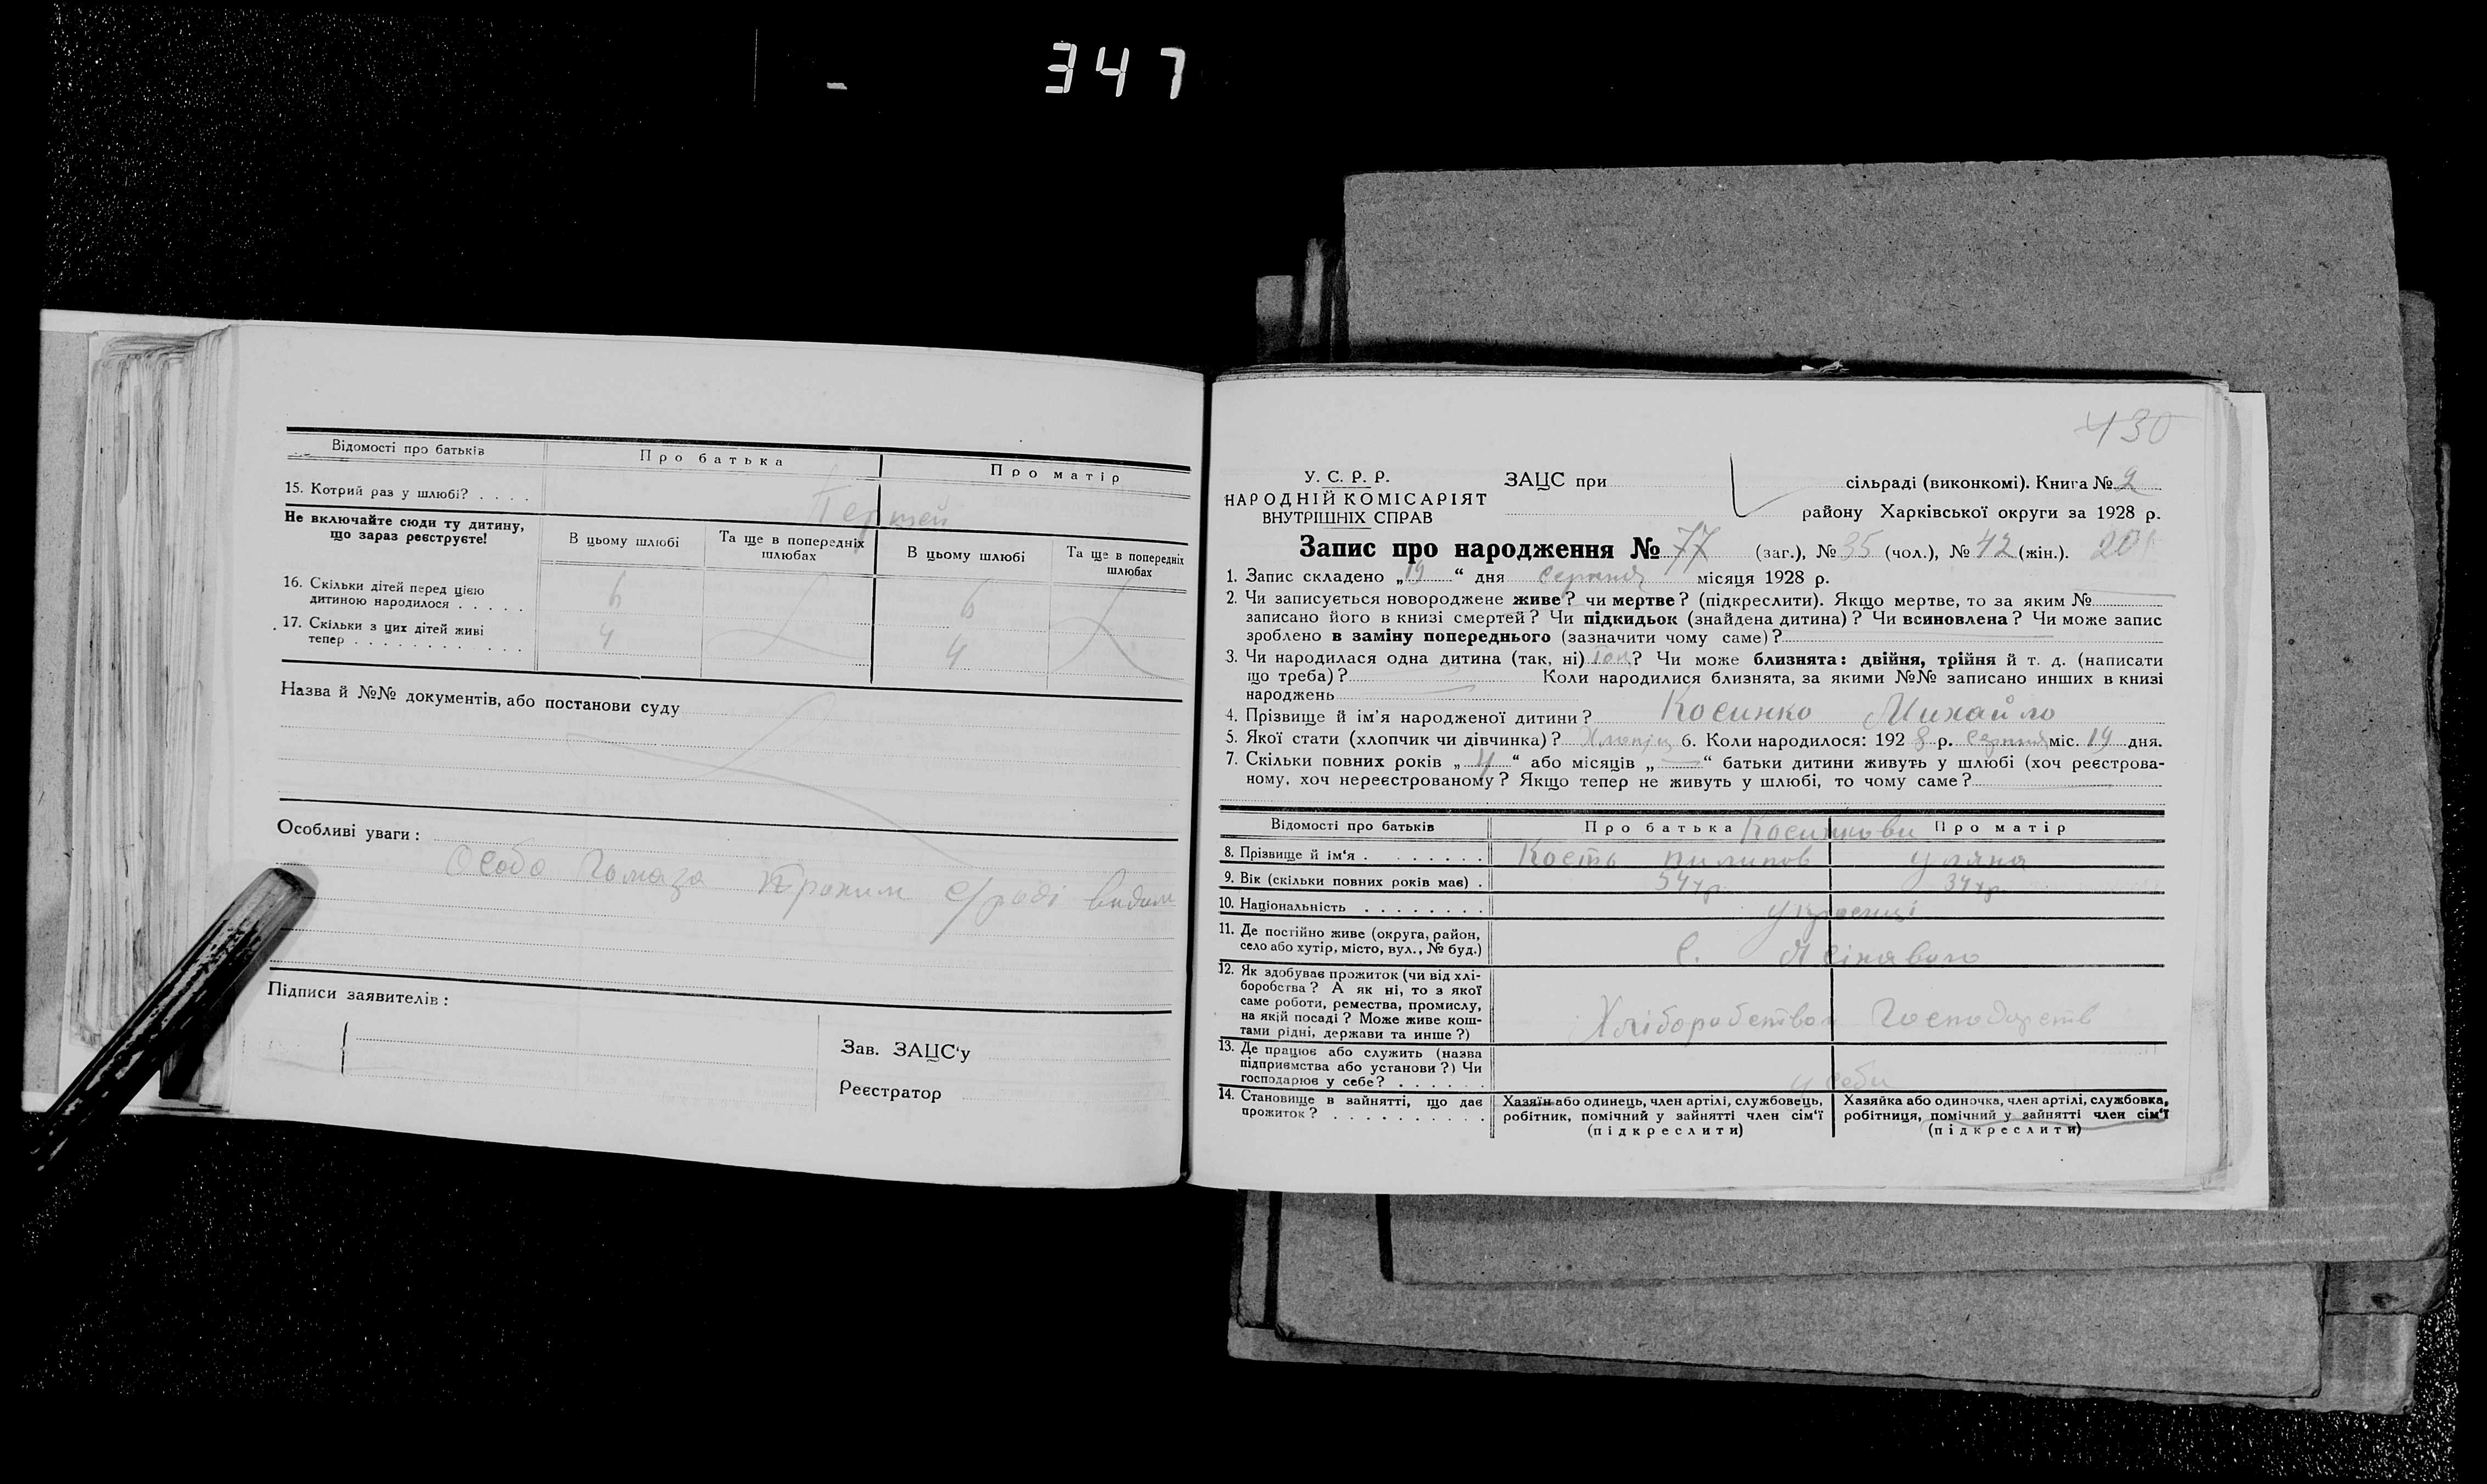 347
Відомості про батьків
Про батька
Про матір
15. Котрий раз у шлюбі? . . . .
Не включайте сюди ту дитину,
що зараз реєструєте!
В цьому шлюбі
Та ще в попередніх
шлюбах
В цьому шлюбі
Та ще в попередніх
шлюбах
16. Скільки дітей перед цією
дитиною народилося . . . . . 6 6
17. Скільки з цих дітей живі
тепер . . . . . . . . . . . . 4 4
Назва й №№ документів, або постанови суду
Особливі уваги:
Особо с/раді
Підписи заявителів:
Зав. ЗАЦС'у
Реєстратор
430
У. С. Р. Р.
НАРОДНІЙ КОМІСАРІЯТ
ВНУТРІШНІХ СПРАВ
ЗАЦС при сільраді (виконкомі). Книга № 2
району Харківської округи за 1928 р.
Запис про народження № 77 (заг.), № 35 (чол.), № 42 (жін.).
1. Запис складено „19“ дня серпня місяця 1928 р.
2. Чи записується новороджене живе? чи мертве? (підкреслити). Якщо мертве, то за яким №
записано його в книзі смертей? Чи підкидьок (знайдена дитина)? Чи всиновлена? Чи може запис
зроблено в заміну попереднього (зазначити чому саме)?
3. Чи народилася одна дитина (так, ні) ? Чи може близнята: двійня, трійня й т. д. (написати
що треба)? Коли народилися близнята, за якими №№ записано инших в книзі
народжень
4. Прізвище й ім'я народженої дитини? Косинко Михайло
5. Якої стати (хлопчик чи дівчинка)? Хлопіц 6. Коли народилося: 1928 р. Серпня міс. 19 дня.
7. Скільки повних років „4“ або місяців „—“ батьки дитини живуть у шлюбі (хоч реєстрова-
ному, хоч нереєстрованому? Якщо тепер не живуть у шлюбі, то чому саме?
Відомості про батьків
Про батька
Косинкови
Про матір
8. Прізвище й ім'я . . . . . . . Кость пилипов уляна
9. Вік (скільки повних років має) . 34
10. Національність . . . . . . . . українці
11. Де постійно живе (округа, район,
село або хутір, місто, вул., № буд.) С.
12. Як здобуває прожиток (чи від хлі-
боробства? А як ні, то з якої
саме роботи, ремества, промислу,
на якій посаді? Може живе кош-
тами рідні, держави та инше?)
Хліборобством
13. Де працює або служить (назва
підприємства або установи?) Чи
господарює у себе? . . . . . . у себи
14. Становище в зайнятті, що дає
прожиток? . . . . . . . . . .
Хазяїн або одинець, член артілі, службовець,
робітник, помічний у зайнятті член сім'ї
(підкреслити)
Хазяйка або одиночка, член артілі, службовка,
робітниця, помічний у зайнятті член сім'ї
(підкреслити)